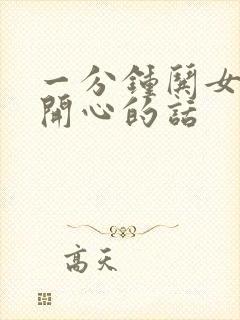 一分鍾鬨女
開心的話
高天